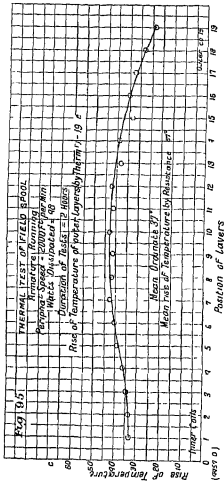 Fig 95
THERMAL TEST OF FIELD SPOOL
Armature Running
Peripheral Speed = 2000 Ft per Min
Watts Dissipated = 90
Duration of Test = 12 Hours
Rise of Temperature of outer Layers (by Therm.) = 19°c
Mean Ordinate
Mean rise of Temperature by Resistance
Rise of Temperature
c
60
50
40
30
20
10
Inner Coils
Outer Coils
1 2 3 4 5 6 7 8 9 10 11 12 13 14 15 16 17 18 19
Position of Layers